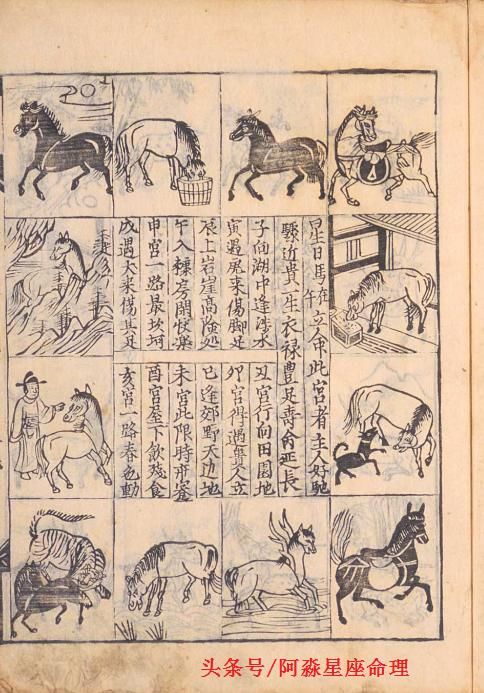 星日馬在午立命此宮者主人好馳
驟近貴生衣禄豊足壽命延長
子向湖中逢涉水 丑宮行向田園地
寅遇尾來傷脚足 卯宮得遇貴人立
辰上岩崖高險処 巳逢郊野天边地
午入糠房閑快樂 未宮此限時
申宮一路最坎坷 酉宮屋下飲殘食
戌遇大来傷其足 亥宮一路春色動
头条号/阿淼星座命理